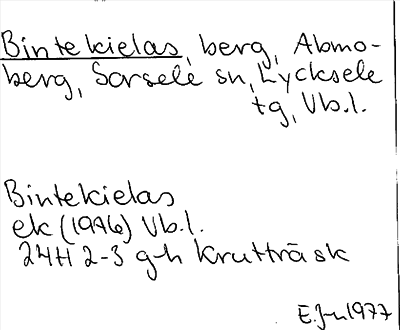 Bintekielas, berg, Abmo-
berg, Sorsele sn, Lycksele
tg, Vb.l.
Bintekielas
ek (1976) Vb.l.
24H 2-3 g-h Krutträsk
1977